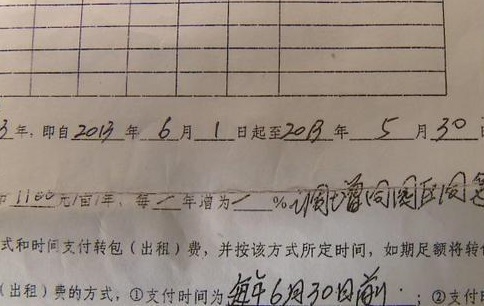 3年，即自2013年6月1日起至2013年5月30日
1100元/亩/年，每一年增为一%调增同园区同
式和时间支付转包（出租）费，并按该方式所定时间，如期足额将转
（出租）费的方式，①支付时间为每年6月30日前；②支付